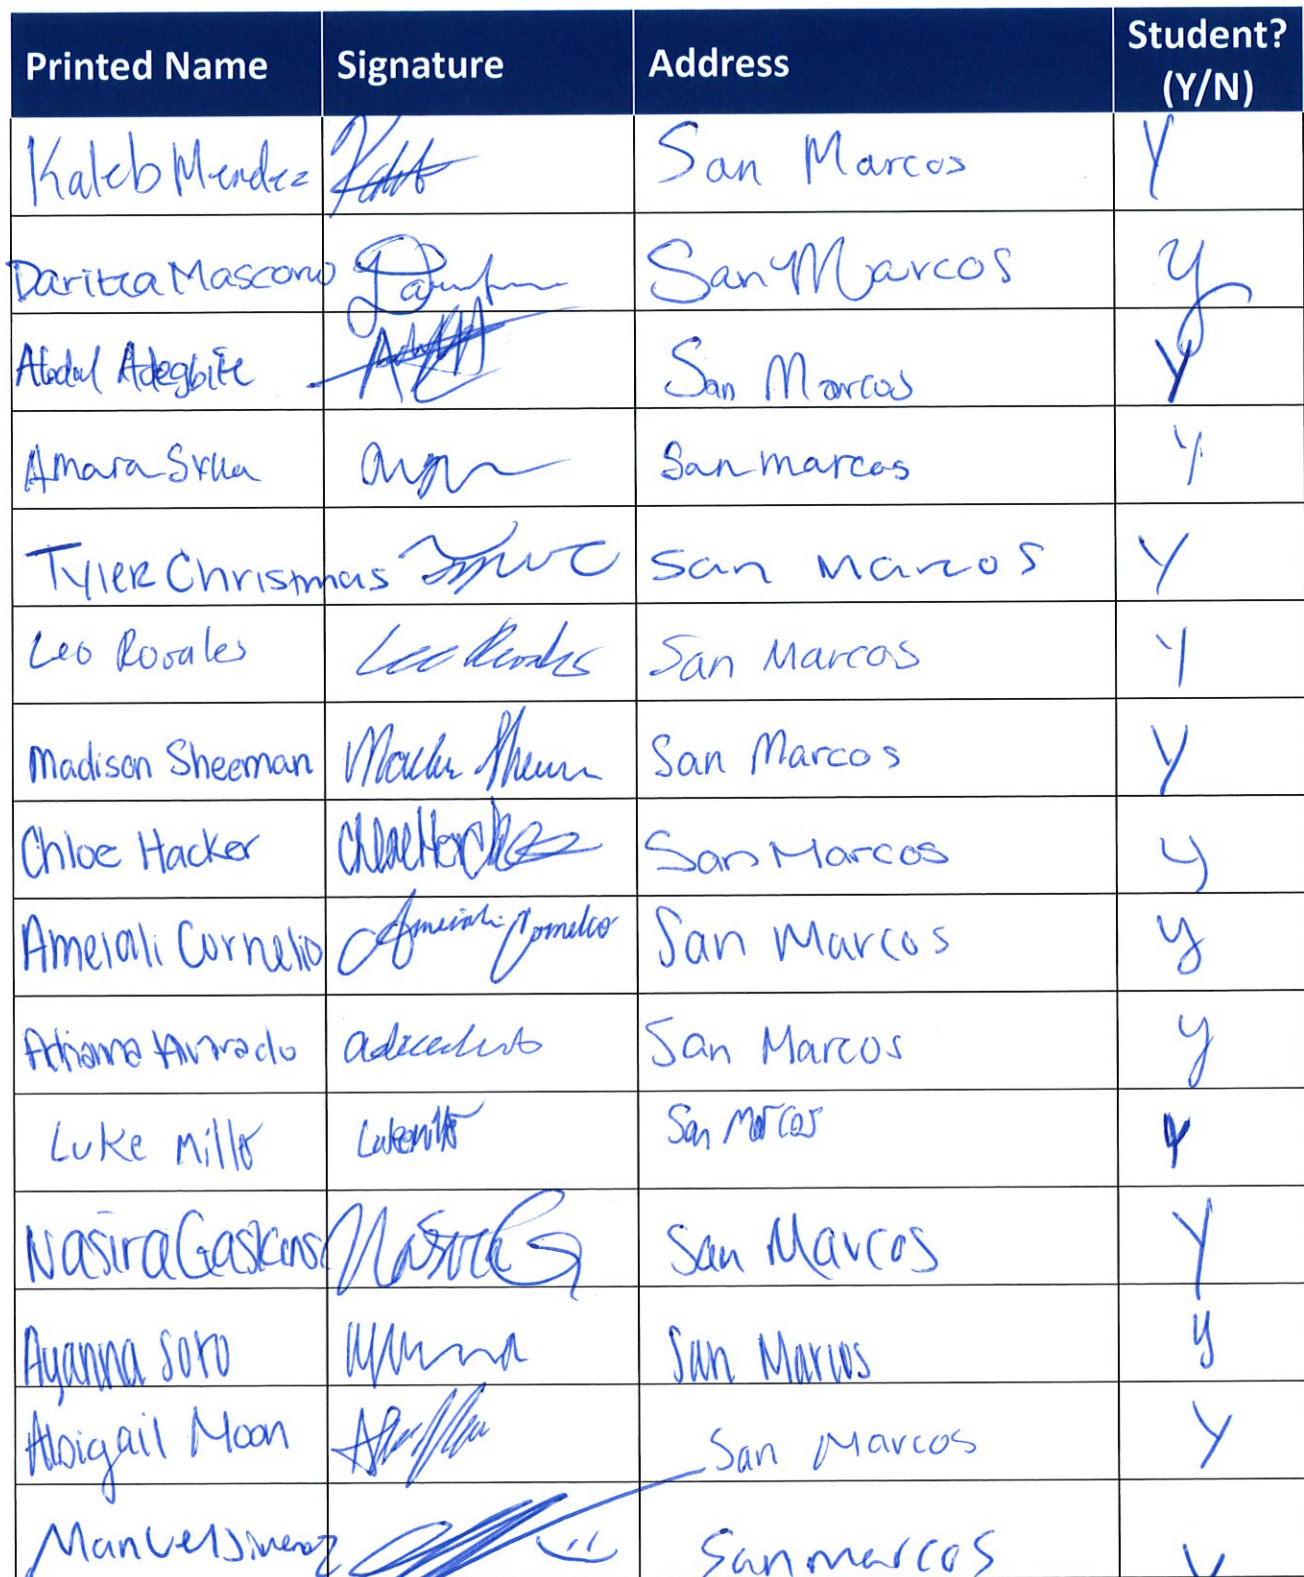 Printed Name Signature Address Student? (Y/N)
Kaleb Mendez San Marcos Y
Daritza San Marcos y
Abdul Adegbite San Marcos Y
Amara San marcos Y
Tyler Christmas San Marcos Y
Leo Rosales Leo San Marcos Y
Madison Sheeman San Marcos Y
Chloe Hacker Chloe Hacker San Marcos y
Cornelio Cornelio San Marcos y
Adriana Alvarado San Marcos y
Luke Mills San Marcos Y
Nasira Gaskins Nasira G San Marcos Y
Ayanna Soto San Marcos y
Abigail Moon San Marcos Y
Manuel Jimenez San marcos Y